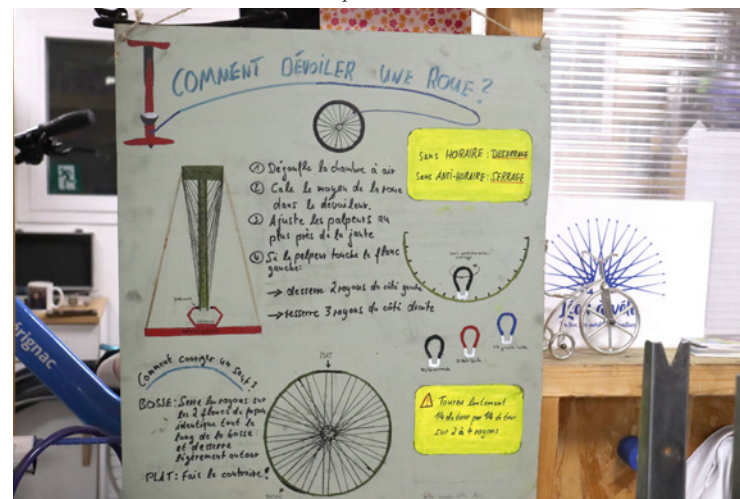 COMMENT DÉVOILER UNE ROUE?
① Dégonfle la chambre à air
② Cale le moyeu de la roue
dans le dévoileur.
③ Ajuste les palpeurs au
plus près de la jante
④ Si le palpeur touche le flanc
gauche:
→ desserre 2 rayons du côté gauche
→ resserre 3 rayons du côté droite
Sens HORAIRE: DESSERRAGE
Sens ANTI-HORAIRE: SERRAGE
Comment corriger un saut?
BOSSE: Serre les rayons sur
les 2 flancs de façon
identique tout le
long de la bosse
et desserre
légèrement autour
PLAT: Fais le contraire!
PLAT
⚠ Tourne lentement
1/4 de tour par 1/4 de tour
sur 2 à 4 rayons
rignac